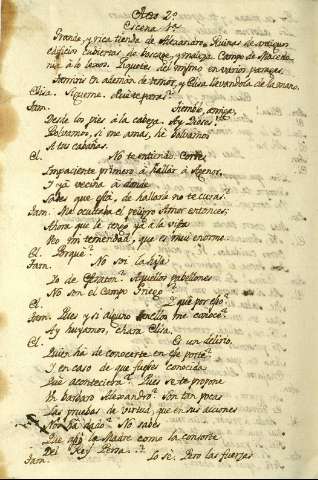 Acto 2º
Escena 1ª
Grande, y rica tienda de Alexandro. Ruinas de antiguos
edificios cubiertas de bosque, y maleza. Campo de Macedo-
nia à lo lexos.
en ademàn de temor, y Elisa llevandola de la mano.
Elisa. Sigueme. Què te paras?
Tam. Tiemblo, amiga,
Desde los pies à la cabeza. Ay Dioses!
Bolvamos, si me amas, hè bolvamos
A tus cabañas.
El. No te entiendo. Corres
Impaciente primero à hallar à Agenor,
I yà vecina à donde
Sabes que està, de hallarle no te curas?
Tam. Me ocultaba el peligro Amor entonces;
Ahora que le tengo yà a la vista
Veo mi temeridad, que es mui enorme.
El. Porquè?
Tam. No soi la hija
De Estraton? Aquellos pabellones
No son el Campo Griego?
El. I què por eso?
Tam. Pues y si alguno en ellos me conoce?
Ay huyamos, chara Elisa.
El. Es un delirio.
Quien ha de conocerte en ese porte?
I en caso de que fueses conocida
Què aconteciera? Pues se te propone
Un barbaro Alexandro? Son tan pocas
Las pruebas de virtud, que en sus acciones
Nos ha dado? No sabes
Que la Madre como la consorte
Del Rey Persa?
Tam. Lo sè. Pero las fuerzas